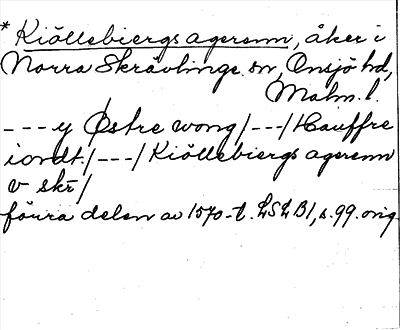 * Kiöllebiergs agerenn, åker i
Norra Skrävlinge sn, Onsjö hd,
Malm. l.
--- y Østre wong /---/ Hauffre
iordt. /---/ Kiöllebiergs agerenn
v skr/
förra delen av 1570-t. LSLB1, s. 99. orig.